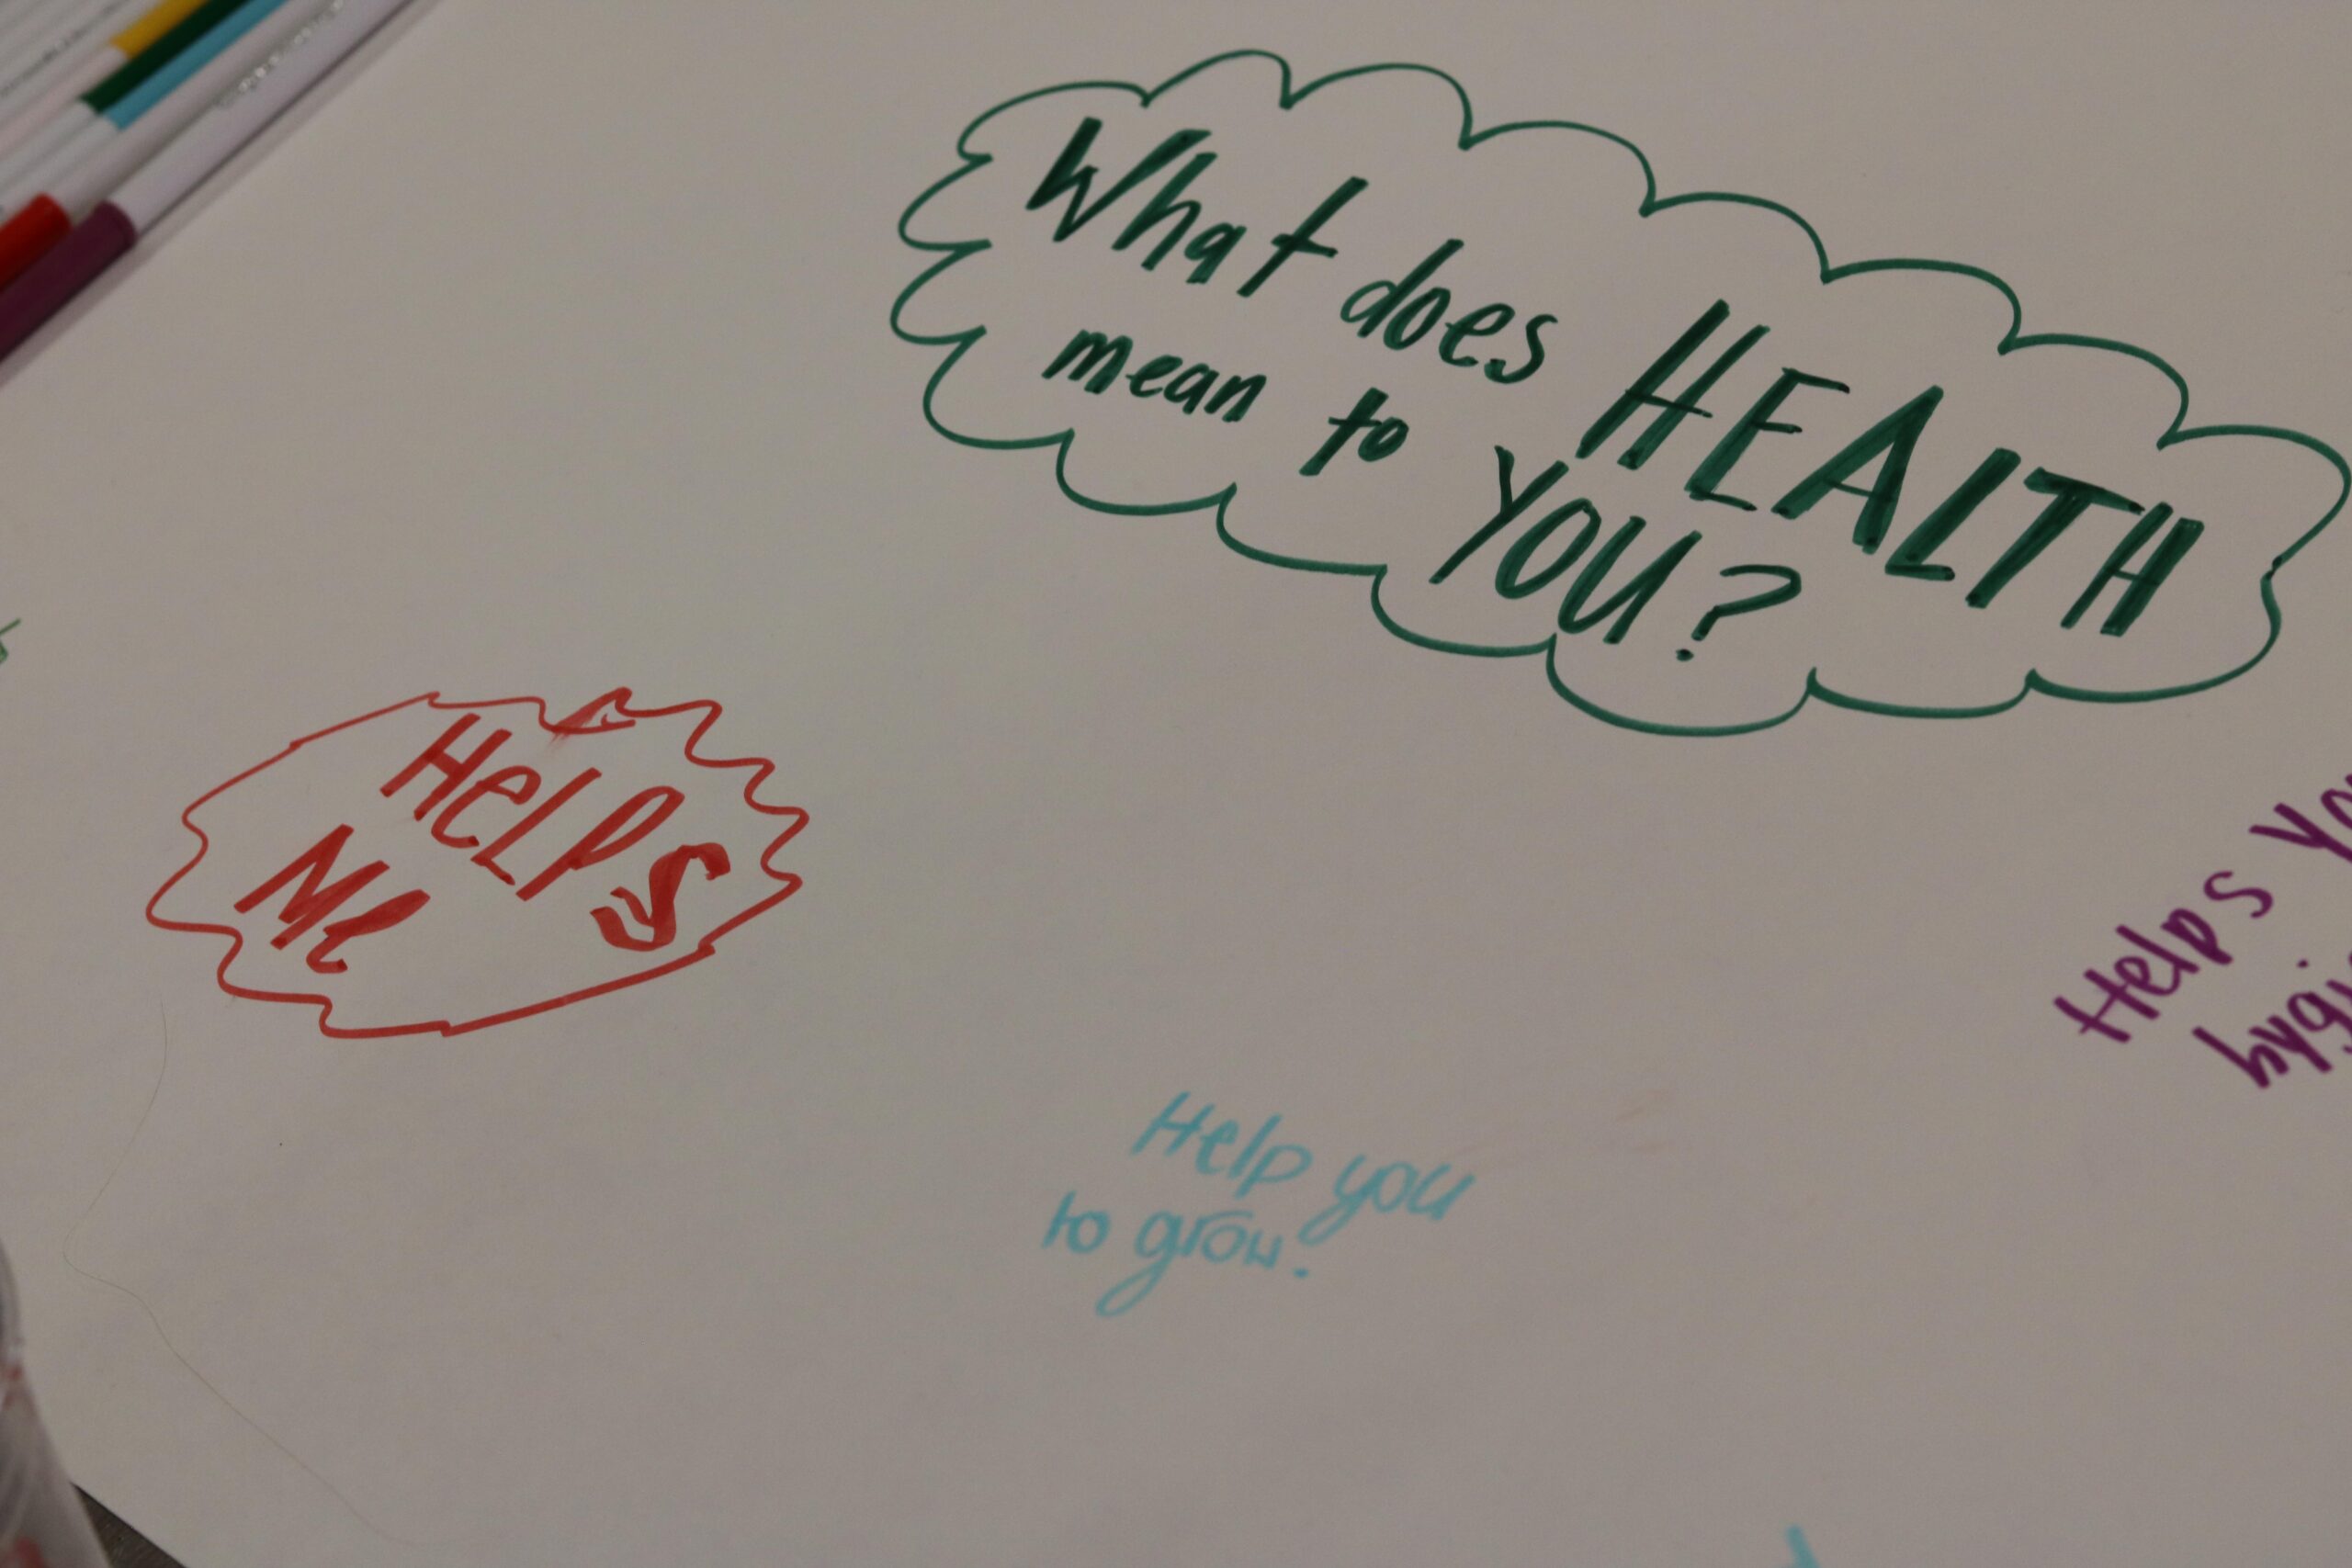 What does HEALTH
mean to YOU?
HelpS
Me
Helps
Help you
to grow.